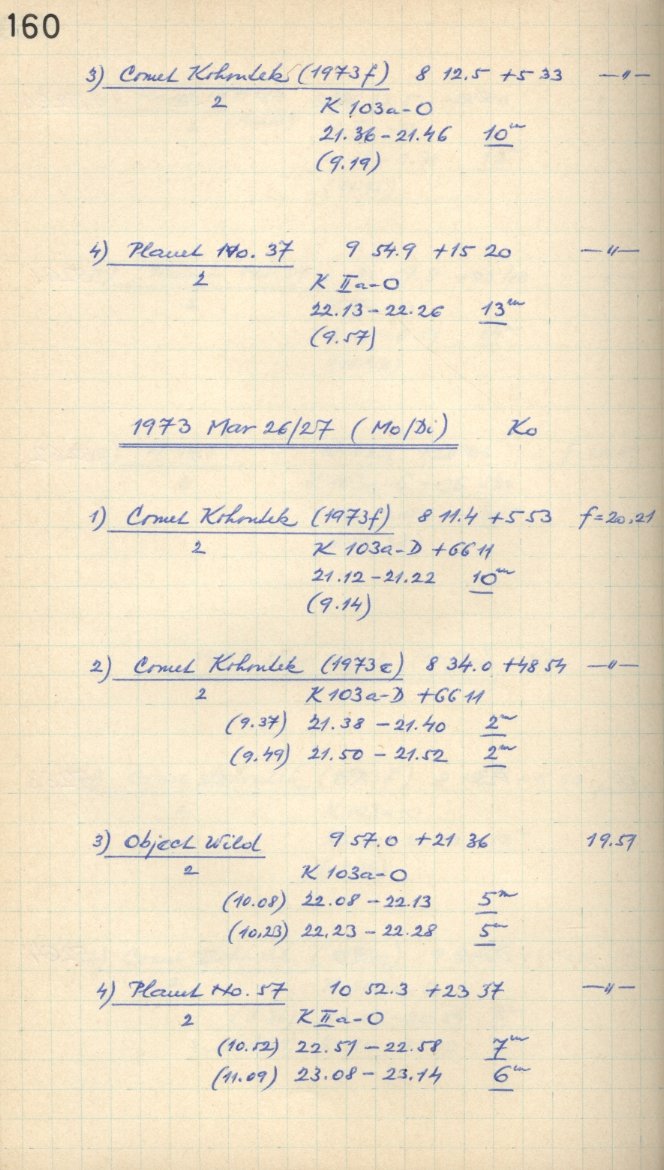 160
3) Comet Kohoutek (1973f) 8 12.5 +5 33 —〃—
2 K 103a-O
21.36-21.46 10ᵐ
(9.19)
4) Planet No. 37 9 54.9 +15 20 —〃—
2 K IIa-O
22.13-22.26 13ᵐ
(9.57)
1973 Mar 26/27 (Mo/Di) Ko
1) Comet Kohoutek (1973f) 8 11.4 +5 53 f=20,21
2 K 103a-D +6611
21.12-21.22 10ᵐ
(9.14)
2) Comet Kohoutek (1973e) 8 34.0 +48 54 —〃—
2 K 103a-D +6611
(9.37) 21.38-21.40 2ᵐ
(9.49) 21.50-21.52 2ᵐ
3) Object Wild 9 57.0 +21 36 19.51
2 K 103a-O
(10.08) 22.08-22.13 5ᵐ
(10,23) 22,23-22.28 5ᵐ
4) Planet No. 57 10 52.3 +23 37 —〃—
2 K IIa-O
(10.52) 22.51-22.58 7ᵐ
(11.09) 23.08-23.14 6ᵐ